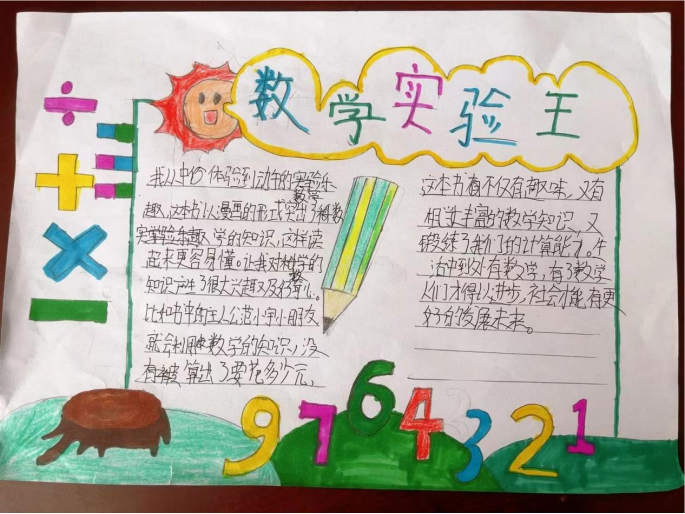 数学实验王
÷
+
×
-
我从中体验到动手的实验乐
趣,这本书以漫画的形式突出了数
实学验乐趣,学的知识,这样读
起来更容易懂。让我对数学的
知识产生了很大兴趣及好奇心。
比如书中的主人公范小宇小朋友
就会利用数学的知识,没
有被算出了要花多少元,
这本书有不仅有趣味,又有
相当丰富的数学知识,又
锻练了我们的计算能力。生
活中到处有数学,有了数学
人们才得以进步,社会才能有更
好的发展未来。
9 7 6 4 3 2 1